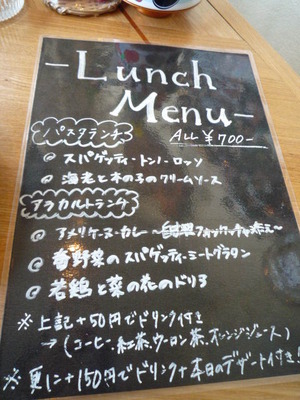 -Lunch
Menu-
パスタランチ
ALL ¥700-
◎ スパゲッティートンノ・ロッソ
◎ 海老と木の子のクリームソース
アラカルトランチ
◎ アメリケーヌカレー ～自家製フォッカッチャ添え～
◎ 春野菜のスパゲッティーミートグラタン
◎ 若鶏と菜の花のドリア
※ 上記+50円でドリンク付き
→(コーヒー、紅茶、ウーロン茶、オレンジジュース)
※ 更に+150円でドリンク+本日のデザート付き!